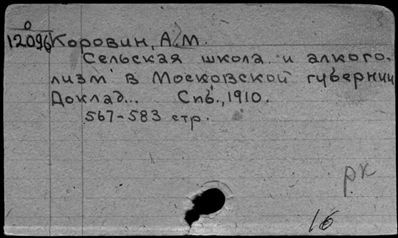 0
12096 Коровин, А.М.
Сельская школа и алкого-
лизм в Московской губернии
Доклад... Спб., 1910.
567-583 стр.
рк
16